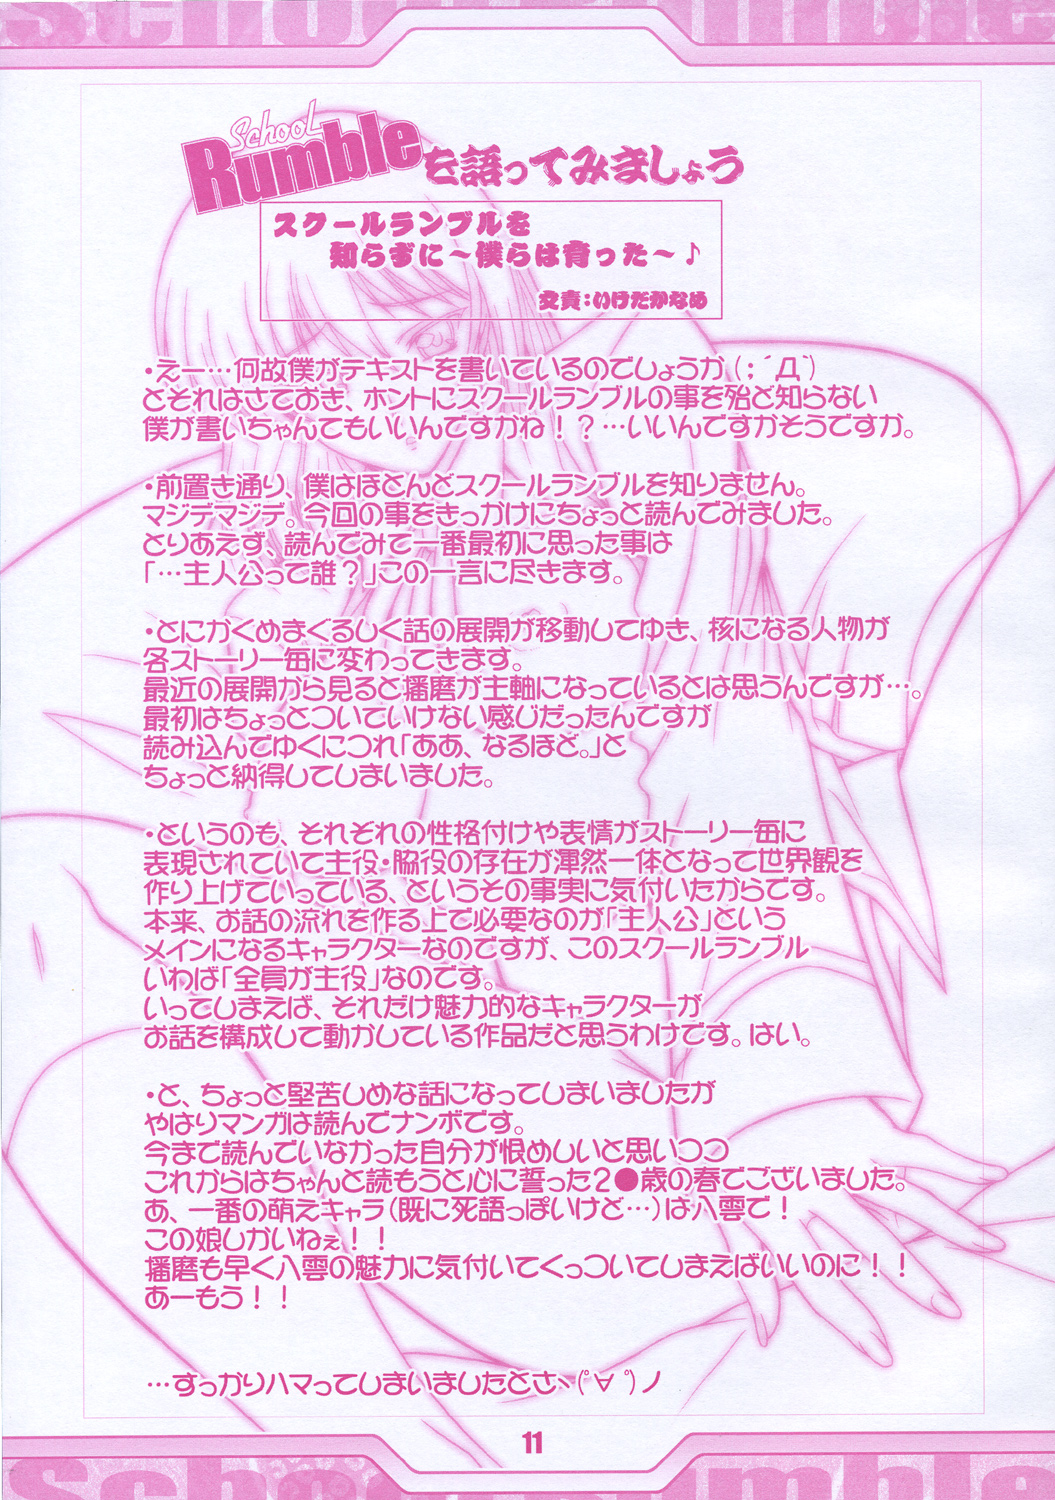 School Rumble
School
Rumbleを語ってみましょう
スクールランブルを
知らずに～僕らは育った～♪
文責：いけだかなめ
・えー…何故僕がテキストを書いているのでしょうか(;´Д`)
とそれはさておき、ホントにスクールランブルの事を殆ど知らない
僕が書いちゃんてもいいんですかね！？…いいんですかそうですか。
・前置き通り、僕はほとんどスクールランブルを知りません。
マジデマジデ。今回の事をきっかけにちょっと読んでみました。
とりあえず、読んでみて一番最初に思った事は
「…主人公って誰？」この一言に尽きます。
・とにかくめまぐるしく話の展開が移動してゆき、核になる人物が
各ストーリー毎に変わってきます。
最近の展開から見ると播磨が主軸になっているとは思うんですが…。
最初はちょっとついていけない感じだったんですが
読み込んでゆくにつれ「ああ、なるほど。」と
ちょっと納得してしまいました。
・というのも、それぞれの性格付けや表情がストーリー毎に
表現されていて主役・脇役の存在が渾然一体となって世界観を
作り上げていっている、というその事実に気付いたからです。
本来、お話の流れを作る上で必要なのが「主人公」という
メインになるキャラクターなのですが、このスクールランブル
いわば「全員が主役」なのです。
いってしまえば、それだけ魅力的なキャラクターが
お話を構成して動かしている作品だと思うわけです。はい。
・と、ちょっと堅苦しめな話になってしまいましたが
やはりマンガは読んでナンボです。
今まで読んでいなかった自分が恨めしいと思いつつ
これからはちゃんと読もうと心に誓った2●歳の春でございました。
あ、一番の萌えキャラ(既に死語っぽいけど…)は八雲で！
この娘しかいねぇ！！
播磨も早く八雲の魅力に気付いてくっついてしまえばいいのに！！
あーもう！！
…すっかりハマってしまいましたとさヽ(ﾟ∀ﾟ)ノ
11
School Rumble